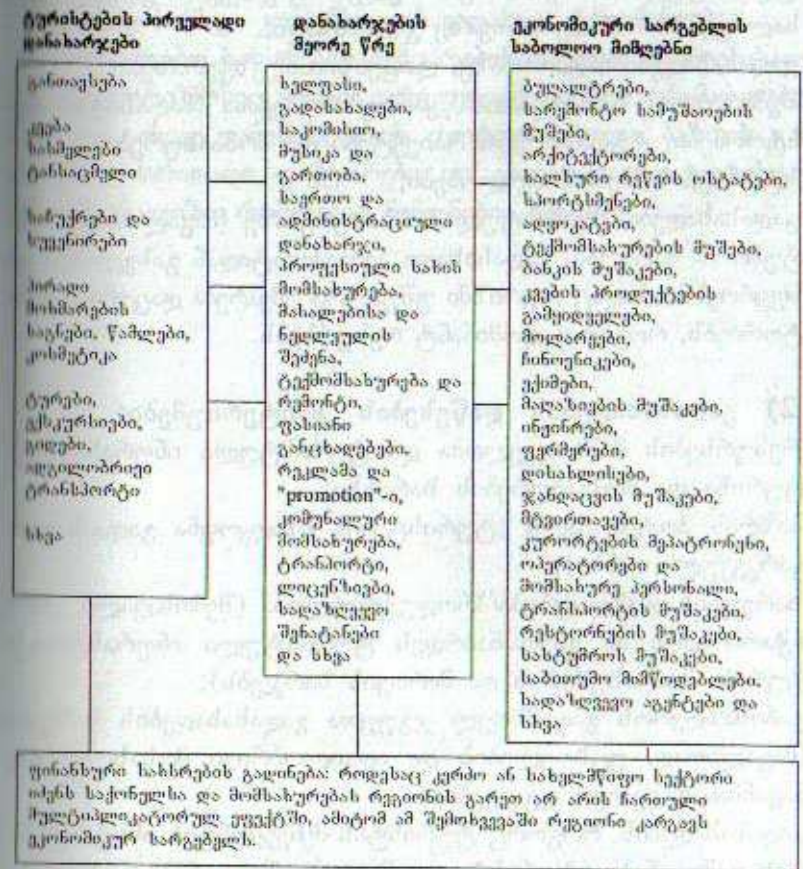 ტურისტების პირველადი
დანახარჯები
განთავსება
კვება
სასმელები
ტანსაცმელი
საჩუქრები და
სუვენირები
პირადი
მოხმარების
საგნები, წამლები,
კოსმეტიკა
ტურები,
ექსკურსიები,
გიდები,
ადგილობრივი
ტრანსპორტი
სხვა
დანახარჯების
მეორე წრე
ხელფასი,
გადასახადები,
საკომისიო,
მუსიკა და
გართობა,
საერთო და
ადმინისტრაციული
დანახარჯი,
პროფესიული სახის
მომსახურება,
მასალებისა და
ნედლეულის
შეძენა,
ტექმომსახურება და
რემონტი,
ფასიანი
განცხადებები,
რეკლამა და
"promotion"-ი,
კომუნალური
მომსახურება,
ტრანპორტი,
ლიცენზიები,
სადაზღვევო
შენატანები
და სხვა
ეკონომიკური სარგებლის
საბოლოო მიმღებნი
ბუღალტრები,
სარემონტო სამუშაოების
მუშები,
არქიტექტორები,
ხალხური რეწვის ოსტატები,
სპორტსმენები,
ადვოკატები,
ტექმომსახურების მუშები,
ბანკის მუშაკები,
კვების პროდუქტების
გამყიდველები,
მოლარეები,
ჩინოვნიკები,
ექიმები,
მაღაზიების მუშაკები,
ინჟინრები,
ფერმერები,
დისახლისები,
ჯანდაცვის მუშაკები,
მტვირთავები,
კურორტების მეპატრონენი,
ოპერატორები და
მომსახურე პერსონალი,
ტრანსპორტის მუშაკები,
რესტორნების მუშაკები,
სასტუმროს მუშაკები,
საბითუმო მიმწოდებლები,
სადაზღვევო აგენტები და
სხვა
ფინანსური სახსრების გადინება: როდესაც კერძო ან სახელმწიფო სექტორი
იძენს საქონელსა და მომსახურებას რეგიონის გარეთ არ არის ჩართული
მულტიპლიკატორულ ეფექტში, ამიტომ ამ შემთხვევაში რეგიონი კარგავს
ეკონომიკურ სარგებელს.